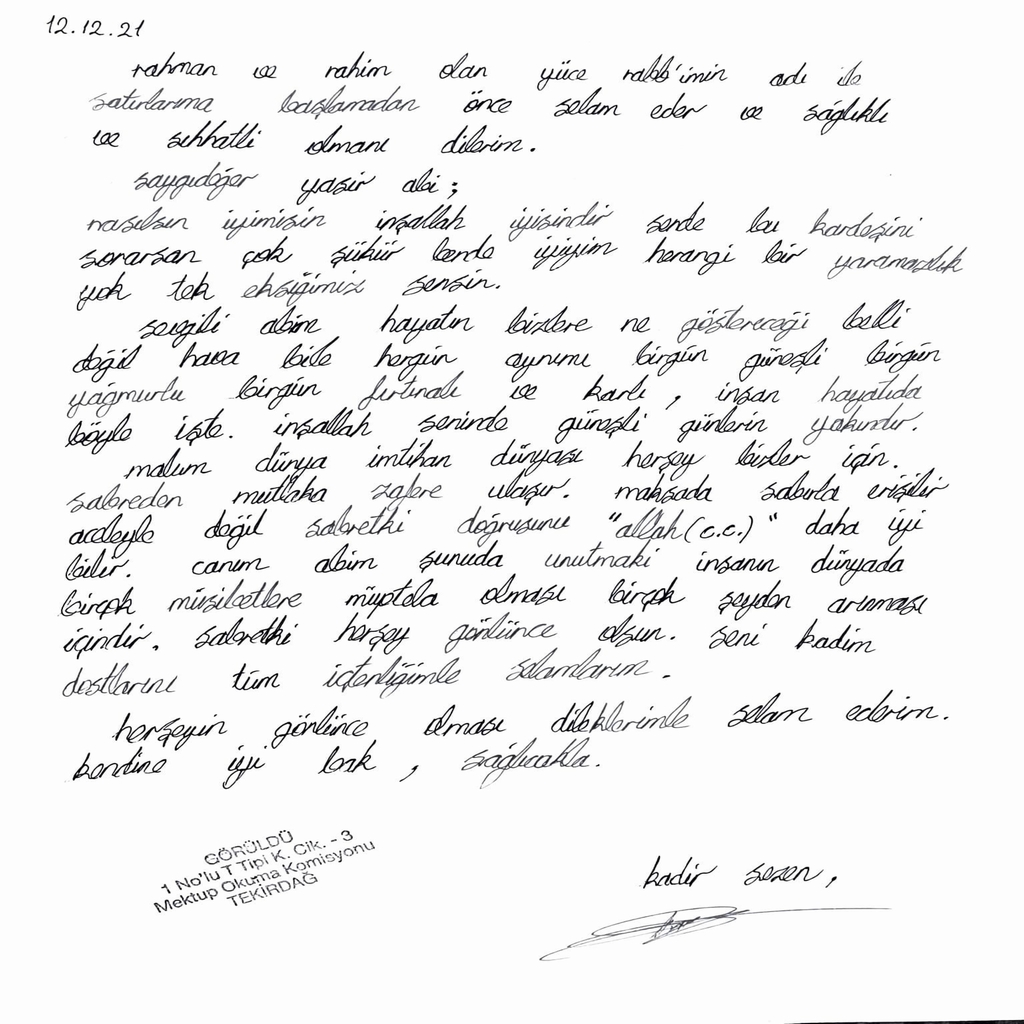 12.12.21
rahman ve rahim olan yüce rabb'imin adı ile
satırlarıma başlamadan önce selam eder ve sağlıklı
ve sıhhatli olmanı dilerim.
saygıdeğer yasir abi;
nasılsın iyimisin inşallah iyisindir sende bu kardeşini
sorarsan çok şükür bende iyiyim herangi bir yaramazlık
yok tek eksiğimiz sensin.
sevgili abim hayatın bizlere ne göstereceği belli
değil hava bile hergün aynımı birgün güneşli birgün
yağmurlu birgün fırtınalı ve karlı, insan hayatıda
böyle işte. inşallah seninde güneşli günlerin yakındır.
malum dünya imtihan dünyası herşey bizler için.
sabreden mutlaka zafere ulaşır. maksada sabırla erişilir
aceleyle değil sabretki doğrusunu "allah (c.c.)" daha iyi
bilir. canım abim şunuda unutmaki insanın dünyada
birçok müsibetlere müptela olması birçok şeyden arınması
içindir. sabretki herşey gönlünce olsun. seni kadim
dostlarını tüm içtenliğimle selamlarım.
herşeyin gönlünce olması dileklerimle selam ederim.
kendine iyi bak, sağlıcakla.
GÖRÜLDÜ
1 No'lu T Tipi K. Cik. - 3
Mektup Okuma Komisyonu
TEKİRDAĞ
kadir sezen,